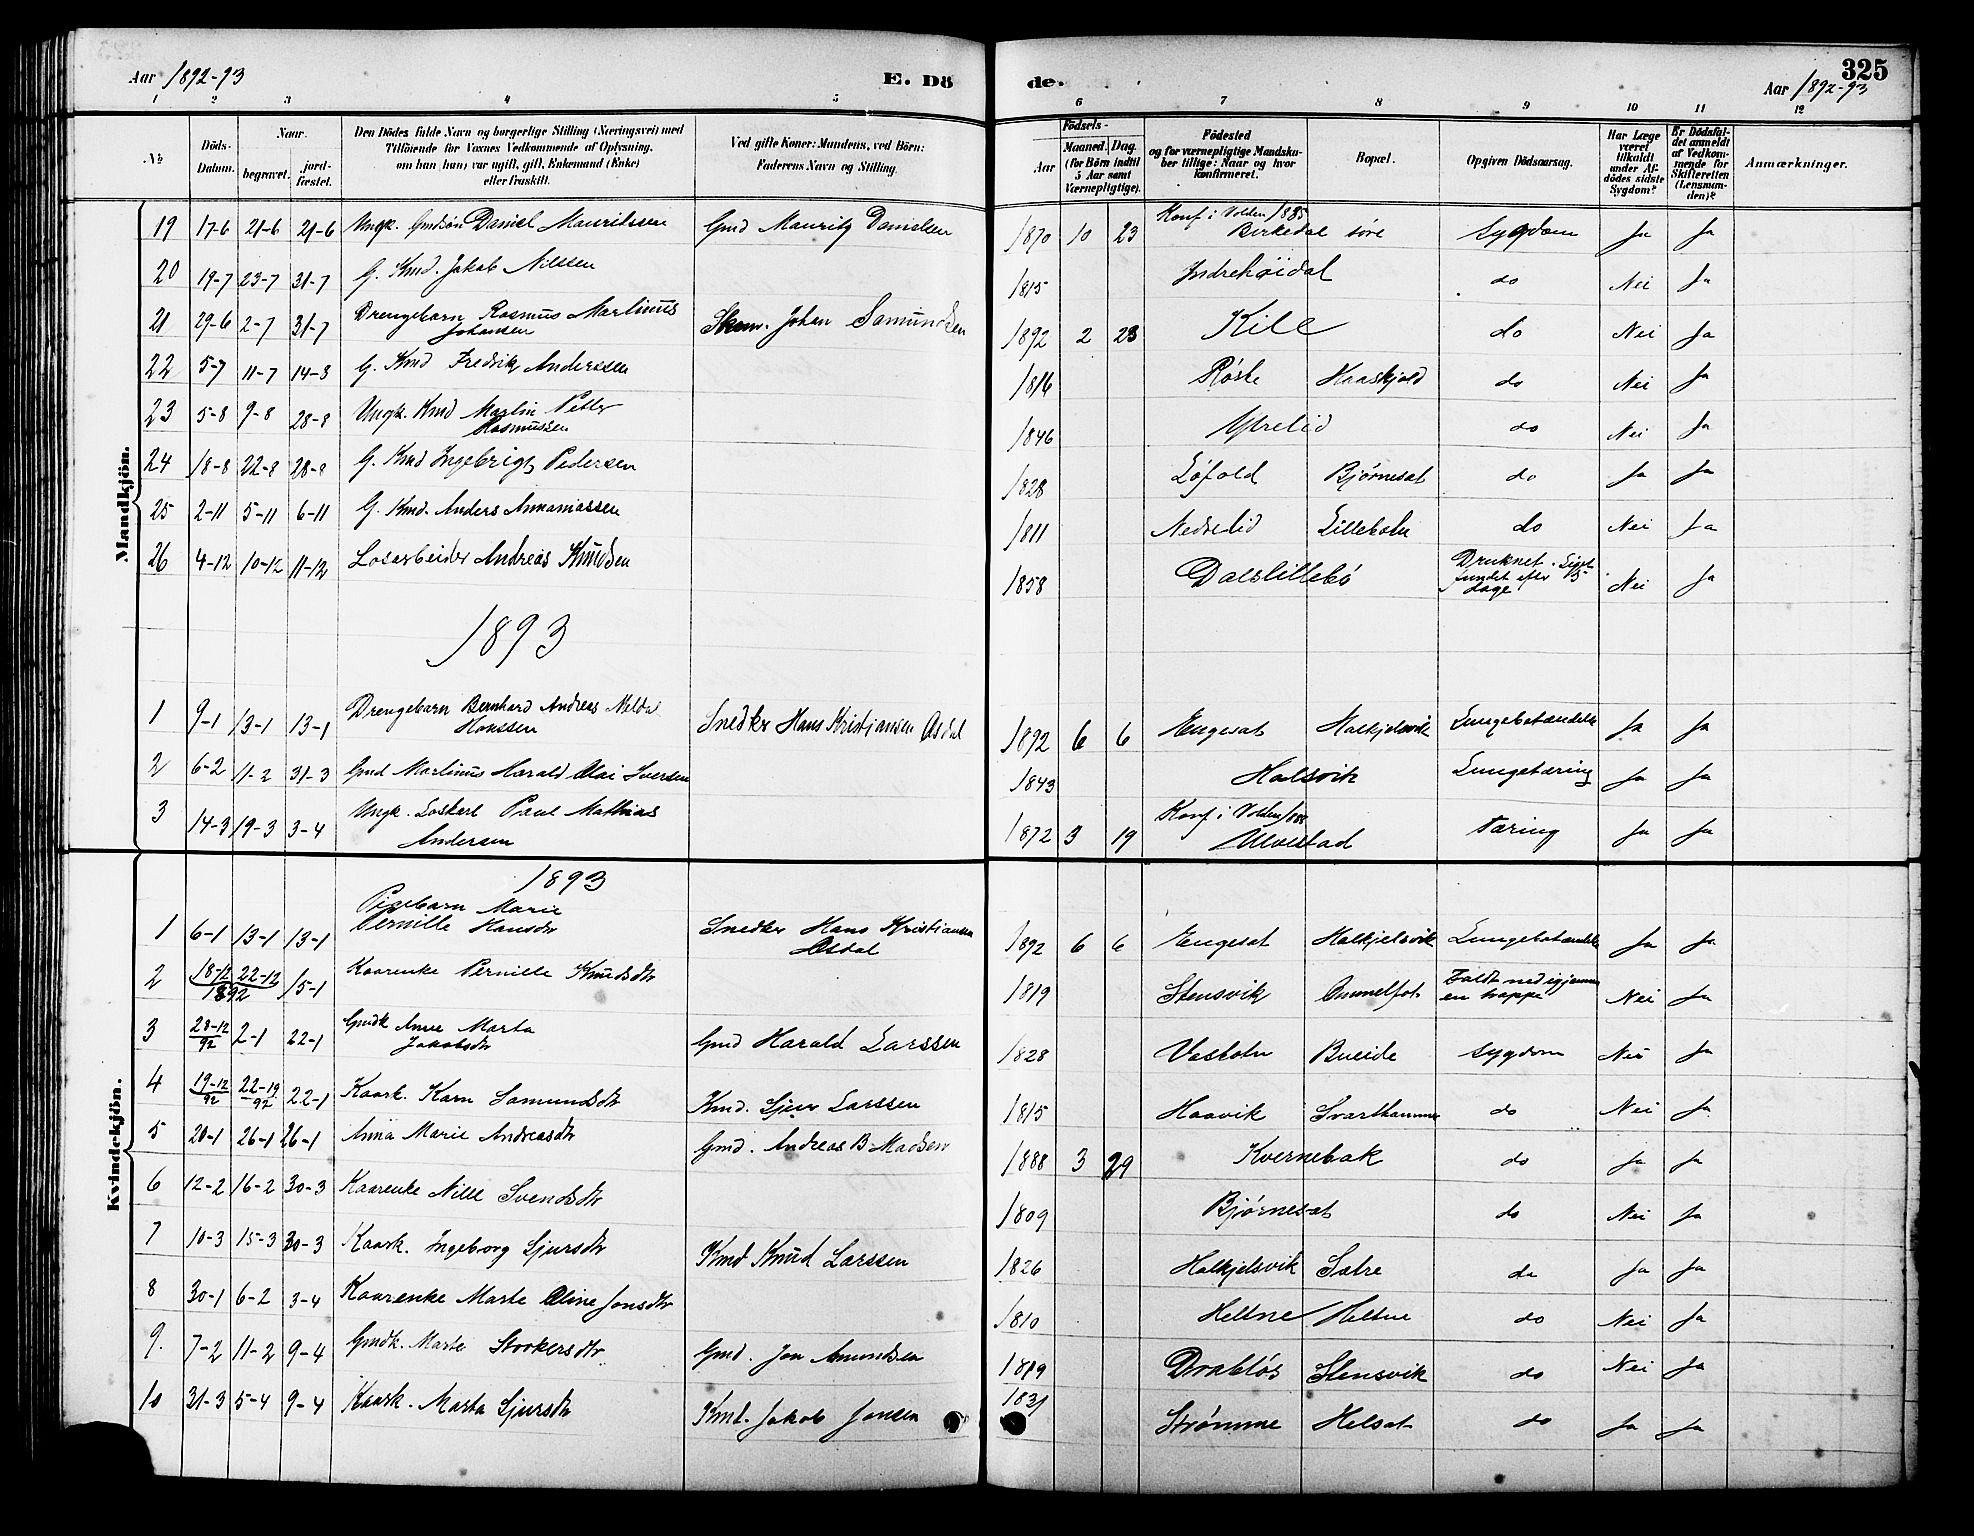 Aar 1892-93
E. Dö
de.
325
Aar 1892-93
1 2 3 4 5 6 7 8 9 10 11 12
No
Döds-Datum.
Naar.
begravet.
jord-fæstet.
Den Dödes fulde Navn og borgerlige Stilling (Næringsvei) med
Tilföiende for Voxnes Vedkommende af Oplysning,
om han (hun) var ugift, gift, Enkemand (Enke)
eller fraskilt.
Ved gifte Koner: Mandens, ved Börn:
Faderens Navn og Stilling.
Födsels-
Aar
Maaned. Dag.
(for Börn indtil
5 Aar samt
Værnepligtige).
Födested
og for værnepligtige Mandska-
ber tillige: Naar og hvor
konfirmeret.
Bopæl.
Opgiven Dödsaarsag.
Har Læge
været
tilkaldt
under Af-
dödes sidste
Sygdom?
Er Dödsfal-
det anmeldt
af Vedkom-
mende for
Skifteretten
(Lensman-
den)?
Anmærkninger.
Mandkjön.
19 17-6 21-6 21-6 Ungk. Gmdsön Daniel Mauritssen Gmd Mauritz Danielsen 1870 10 23 Konf i Volden 1885 Birkedal søre Sygdom Ja Ja
20 19-7 23-7 31-7 G. Kmd. Jakob Nilssen 1815 Indrehøidal do Nei Ja
21 29-6 2-7 31-7 Drengebarn Rasmus Martinus
Johansen Johan Samundsen 1892 2 23 Kile do Nei Ja
22 5-7 11-7 14-8 G. Kmd Fredrik Anderssen 1816 Røste Haaskjold do Nei Ja
23 5-8 9-8 28-8 Ungk. Kmd Martin Petter
Rasmussen 1846 Ytrelid do Nei Ja
24 18-8 22-8 28-8 G. Kmd Ingebrigt Pedersen 1828 Løfold Bjørneset do Ja Ja
25 2-11 5-11 6-11 G. Kmd. Anders Annaniassen 1811 Nedrelid Lilleholm do Nei Ja
26 4-12 10-12 11-12 Losarbeider Andreas Knudsen 1858 Dalslillebø Druknet. Liget
fundet efter 15
dage Nei Ja
1893
1 9-1 13-1 13-1 Drengebarn Bernhard Andreas
Hanssen Snedker Hans Kristjansen Osdal 1892 6 6 Engeset Halkjelsvik Lungebetændelse Ja Ja
2 6-2 11-2 31-3 Gmd Martinus Harald Olai Iversen 1843 Halsvik Lungetæring Ja Ja
3 14-3 19-3 3-4 Ungk. Loskarl Paul Mathias
Andersen 1872 3 19 Konf i Volden Ulvestad Tæring Ja Ja
Kvindekjön.
1893
1 6-1 13-1 13-1 Pigebarn Marie
Pernille Hansdtr Snedker Hans Kristiansen
Osdal 1892 6 6 Engeset Halkjelsvik Lungebetændelse Ja Ja
2 18-12 22-12 1892 15-1 Kaarenke Pernille Knudsdtr 1819 Stensvik Faldt ned igjennem
en trappe Nei Ja
3 28-12 92 2-1 22-1 Gmdk Anne Marta
Jakobsdtr Gmd Harald Larssen 1828 Vatholm Bueide Sygdom Nei Ja
4 19-12 92 22-19 92 22-1 Kaark. Karn Samundsdtr Kmd. Sjeur Larssen 1815 Haavik Svarthammer do Nei Ja
5 20-1 26-1 26-1 Anna Marie Andreasdtr Gmd. Andreas B Madsen 1888 3 29 Kvernebak do Ja Ja
6 12-2 16-2 30-3 Kaarenke Nille Svendsdtr 1809 Bjørneset do Nei Ja
7 10-3 15-3 30-3 Kaark. Ingeborg Sjursdtr Kmd Knud Larssen 1826 Halkjelsvik Sætre do Ja Ja
8 30-1 6-2 3-4 Kaarenke Marte Oline Jonsdtr 1810 Heltne Heltne do Nei Ja
9. 7-2 11-2 9-4 Gmdk. Marte Storkersdtr Gmd. Jon Amundsen 1819 Drabløs Stensvik do Nei Ja
10 31-3 5-4 9-4 Kaark. Marta Sjursdtr Kmd. Jakob Jonsen 1831 Strømme Helset do Ja Ja